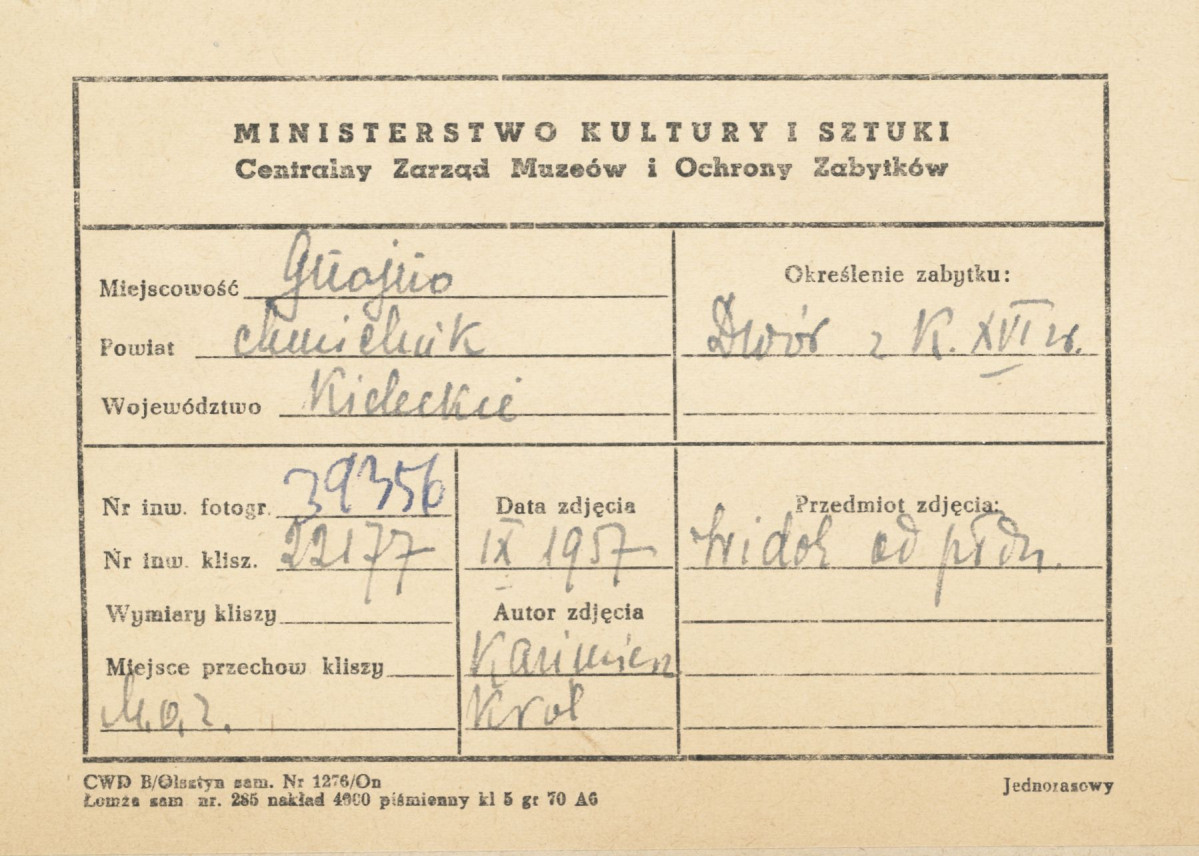 MINISTERSTWO KULTURY I SZTUKI
Centralny Zarząd Muzeów i Ochrony Zabytków
Miejscowość Gnojno
Powiat chmielnik
Województwo Kieleckie
Określenie zabytku:
Dwór z K. XVI w.
Nr inw. fotogr. 39356
Nr inw. klisz. 22177
Wymiary kliszy
Miejsce przechow kliszy
M.O.Z.
Data zdjęcia
IX 1957
Autor zdjęcia
Kazimierz
Krol
Przedmiot zdjęcia:
Widok od płdn.
CWD B/Olsztyn zam. Nr 1276/On
Łomża zam nr. 285 nakład 4000 piśmienny kl 5 gr 70 A6
Jednorazowy